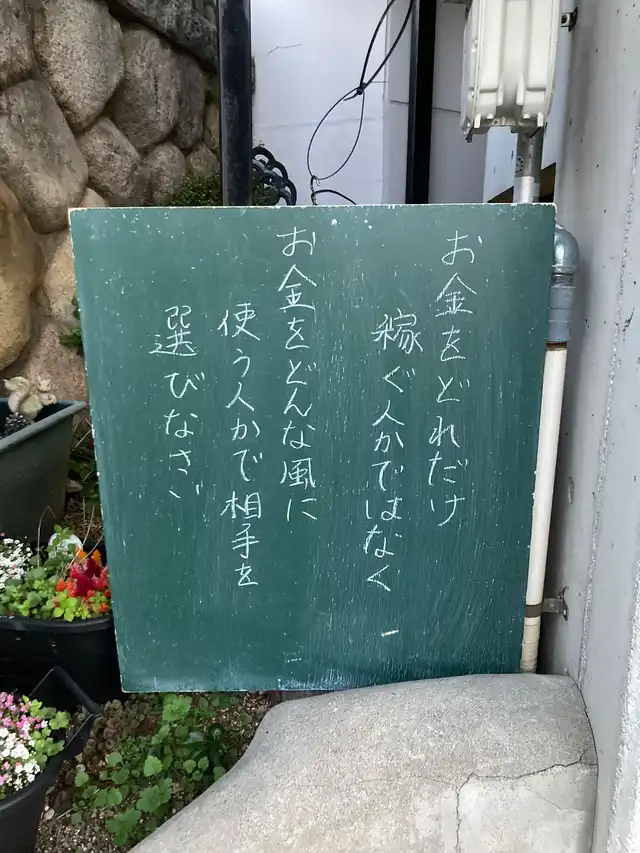 お金をどれだけ
稼ぐ人かではなく
お金をどんな風に
使う人かで相手を
選びなさい